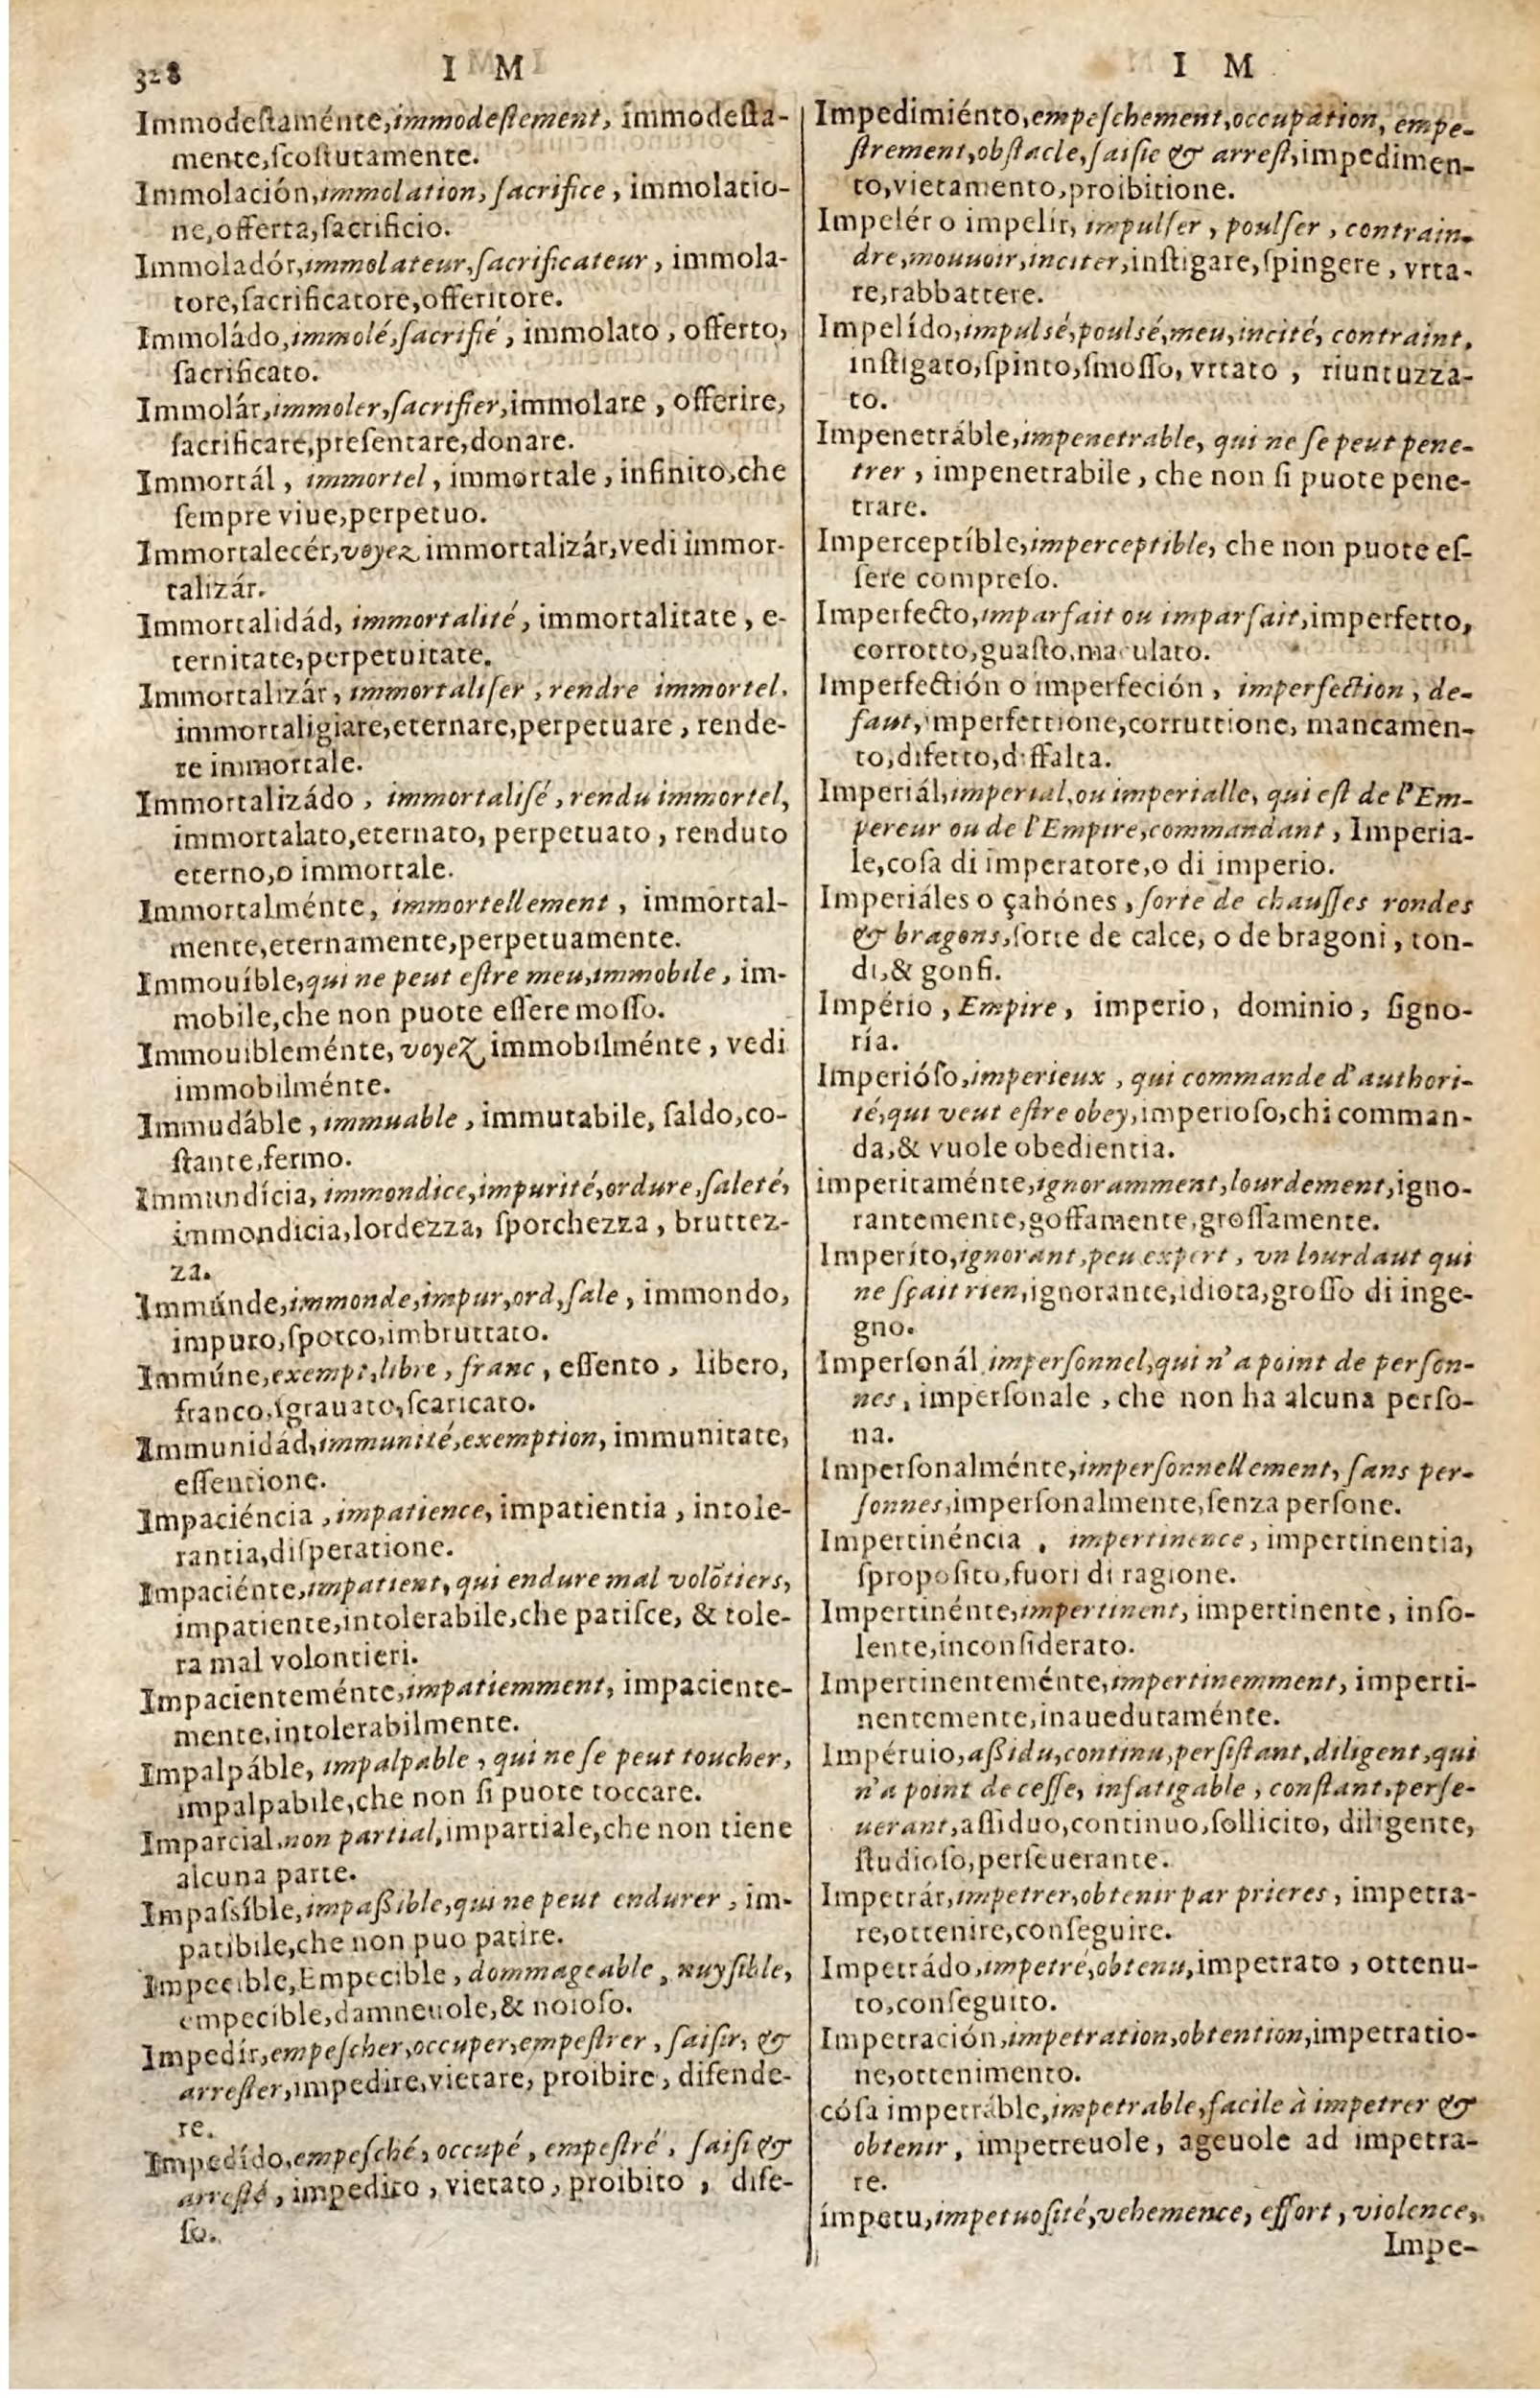 328 I M
Immodeſtaménte,immodeſtement, immodeſta-
mente,ſcoſtutamente.
Immolación,immolation, ſacrifice, immolatio-
ne,offerta,ſacrificio.
Immoladór,immolateur,ſacrificateur, immola-
tore,ſacrificatore,offeritore.
Immoládo,immolé,ſacrifié, immolato, offerto,
ſacrificato.
Immolár,immoler,ſacrifier,immolare, offerire,
ſacrificare,preſentare,donare.
Immortál, immortel, immortale, infinito,che
ſempre viue,perpetuo.
Immortalecér,voyez immortalizár,vedi immor-
talizár.
Immortalidád, immortalité, immortalitate, e-
ternitate,perpetuitate.
Immortalizár, immortaliſer, rendre immortel.
immortaligiare,eternare,perpetuare, rende-
re immortale.
Immortalizádo, immortaliſé, rendu immortel,
immortalato,eternato, perpetuato, renduto
eterno,o immortale.
Immortalménte, immortellement, immortal-
mente,eternamente,perpetuamente.
Immouíble,qui ne peut eſtre meu,immobile, im-
mobile,che non puote eſſere moſſo.
Immouibleménte, voyez immobilménte, vedi
immobilménte.
Immudáble, immuable, immutabile, ſaldo,co-
ſtante,fermo.
Immundícia, immondice,impurité,ordure,ſaleté,
immondicia,lordezza, ſporchezza, bruttez-
za.
Immúnde,immonde,impur,ord,ſale, immondo,
impuro,ſporco,imbruttato.
Immúne,exempt,libre, franc, eſſento, libero,
franco,ſgrauato,ſcaricato.
Immunidád,immunité,exemption, immunitate,
eſſentione.
Impaciéncia, impatience, impatientia, intole-
rantia,diſperatione.
Impaciénte,impatient, qui endure mal volõtiers,
impatiente,intolerabile,che patiſce, & tole-
ra mal volontieri.
Impacienteménte,impatiemment, impaciente-
mente,intolerabilmente.
Impalpáble, impalpable, qui ne ſe peut toucher,
impalpabile,che non ſi puote toccare.
Imparcial,non partial,impartiale,che non tiene
alcuna parte.
Impaſsíble,impaßible,qui ne peut endurer, im-
patibile,che non puo patire.
Impecible,Empecible, dommageable, nuyſible,
empecible,damneuole,& noioſo.
Impedír,empeſcher,occuper,empeſtrer, ſaiſir, &
arreſter,impedire,vietare, proibire, difende-
re.
Impedído,empeſché, occupé, empeſtré, ſaiſi &
arreſté, impedito, vietato, proibito, dife-
ſo.
I M
Impedimiénto,empeſchement,occupation, empe-
ſtrement,obſtacle,ſaiſie & arreſt,impedimen-
to,vietamento,proibitione.
Impelér o impelír, impulſer, poulſer, contrain-
dre,mouuoir,inciter,inſtigare,ſpingere, vrta-
re,rabbattere.
Impelído,impulsé,poulsé,meu,incité, contraint,
inſtigato,ſpinto,ſmoſſo, vrtato, riuntuzza-
to.
Impenetráble,impenetrable, qui ne ſe peut pene-
trer, impenetrabile, che non ſi puote pene-
trare.
Imperceptíble,imperceptible, che non puote eſ-
ſere compreſo.
Imperfecto,imparfait ou imparfait,imperfetto,
corrotto,guaſto,maculato.
Imperfectión o imperfeción, imperfection, de-
faut,imperfettione,corruttione, mancamen-
to,difetto,diffalta.
Imperiál,imperial,ou imperialle, qui eſt de l'Em-
pereur ou de l'Empire,commandant, Imperia-
le,coſa di imperatore,o di imperio.
Imperiáles o çahónes, ſorte de chauſſes rondes
& bragons,ſorte de calce, o de bragoni, ton-
di,& gonfi.
Império, Empire, imperio, dominio, ſigno-
ría.
Imperióſo,imperieux, qui commande d'authori-
té,qui veut eſtre obey,imperioſo,chi comman-
da,& vuole obedientia.
imperitaménte,ignoramment,lourdement,igno-
rantemente,goffamente,groſſamente.
Imperíto,ignorant,peu expert, vn lourdaut qui
ne ſçait rien,ignorante,idiota,groſſo di inge-
gno.
Imperſonál,imperſonnel,qui n'a point de perſon-
nes, imperſonale, che non ha alcuna perſo-
na.
Imperſonalménte,imperſonnellement, ſans per-
ſonnes,imperſonalmente,ſenza perſone.
Impertinéncia, impertinence, impertinentia,
ſpropoſito,fuori di ragione.
Impertinénte,impertinent, impertinente, inſo-
lente,inconſiderato.
Impertinenteménte,impertinemment, imperti-
nentemente,inauedutaménte.
Impéruio,aßidu,continu,perſiſtant,diligent,qui
n'a point de ceſſe, infatigable, conſtant,perſe-
uerant,aſſiduo,continuo,ſollicito, diligente,
ſtudioſo,perſeuerante.
Impetrár,impetrer,obtenir par prieres, impetra-
re,ottenire,conſeguire.
Impetrádo,impetré,obtenu,impetrato, ottenu-
to,conſeguito.
Impetración,impetration,obtention,impetratio-
ne,ottenimento.
cóſa impetráble,impetrable,facile à impetrer &
obtenir, impetreuole, ageuole ad impetra-
re.
ímpetu,impetuoſité,vehemence, effort, violence,
Impe-